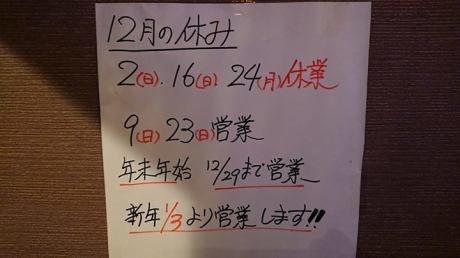 12月の休み
2(日).16(日).24(月)休業
9(日)23(日)営業
年末年始 12/29まで営業
新年1/3より営業します!!